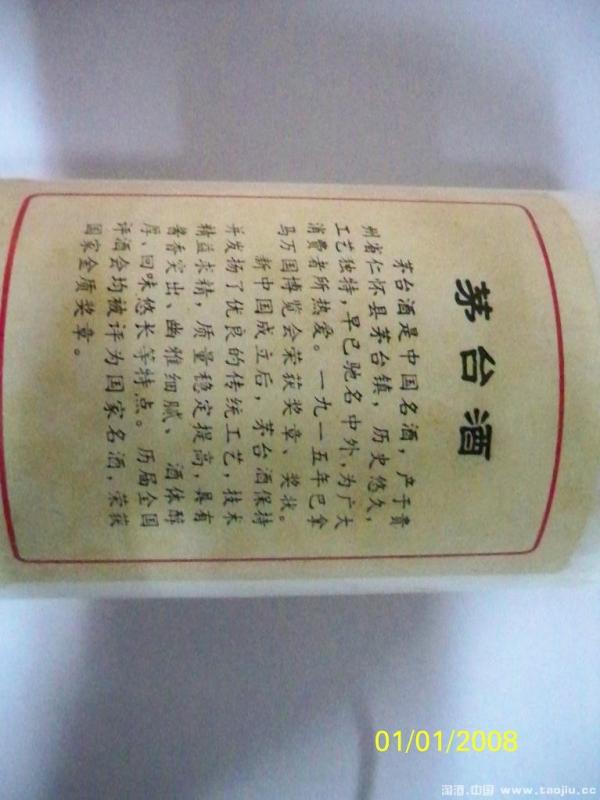 茅台酒
茅台酒是中国名酒，产于贵
州省仁怀县茅台镇，历史悠久，
工艺独特，早已驰名中外，为广大
消费者所热爱。一九一五年巴拿
马万国博览会荣获奖章、奖状。
新中国成立后，茅台酒保持
并发扬了优良的传统工艺，技术
精益求精，质量稳定提高，具有
酱香突出、幽雅细腻、酒体醇
厚、回味悠长等特点。历届全国
评酒会均被评为国家名酒，荣获
国家金质奖章。
01/01/2008
淘酒.中国 www.taojiu.cc